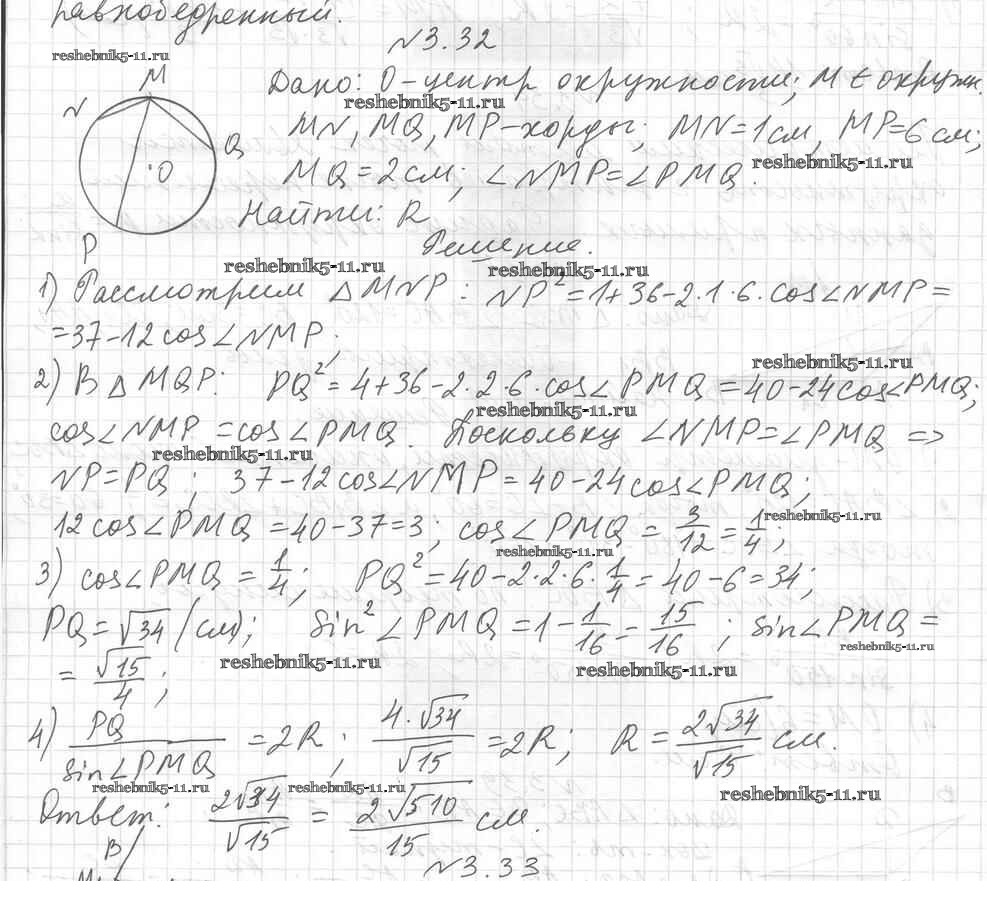 равнобедренный.
N3.32
reshebnik5-11.ru
M
Дано: O-центр окружности; M ∈ окружн.
reshebnik5-11.ru
N
MN, MQ, MP-хорды; MN=1см, MP=6см;
Q
reshebnik5-11.ru
O
MQ=2см; ∠NMP=∠PMQ.
Найти: R
P
Решение.
reshebnik5-11.ru reshebnik5-11.ru
1) Рассмотрим △MNP: NP²=1+36-2·1·6·cos∠NMP=
=37-12cos∠NMP;
reshebnik5-11.ru
2) В △MQP: PQ²=4+36-2·2·6·cos∠PMQ=40-24cos∠PMQ;
reshebnik5-11.ru
cos∠NMP=cos∠PMQ. Поскольку ∠NMP=∠PMQ =>
reshebnik5-11.ru
NP=PQ; 37-12cos∠NMP=40-24cos∠PMQ;
12cos∠PMQ=40-37=3; cos∠PMQ=3/12=1/4;
reshebnik5-11.ru
reshebnik5-11.ru
3) cos∠PMQ=1/4; PQ²=40-2·2·6·1/4=40-6=34;
PQ=√34 (см); sin²∠PMQ=1-1/16=15/16; sin∠PMQ=
reshebnik5-11.ru
=√15/4;
reshebnik5-11.ru reshebnik5-11.ru
4) PQ/sin∠PMQ=2R; 4·√34/√15=2R; R=2√34/√15 см.
reshebnik5-11.ru reshebnik5-11.ru reshebnik5-11.ru
Ответ: 2√34/√15=2√510/15 см.
B
N3.33
M